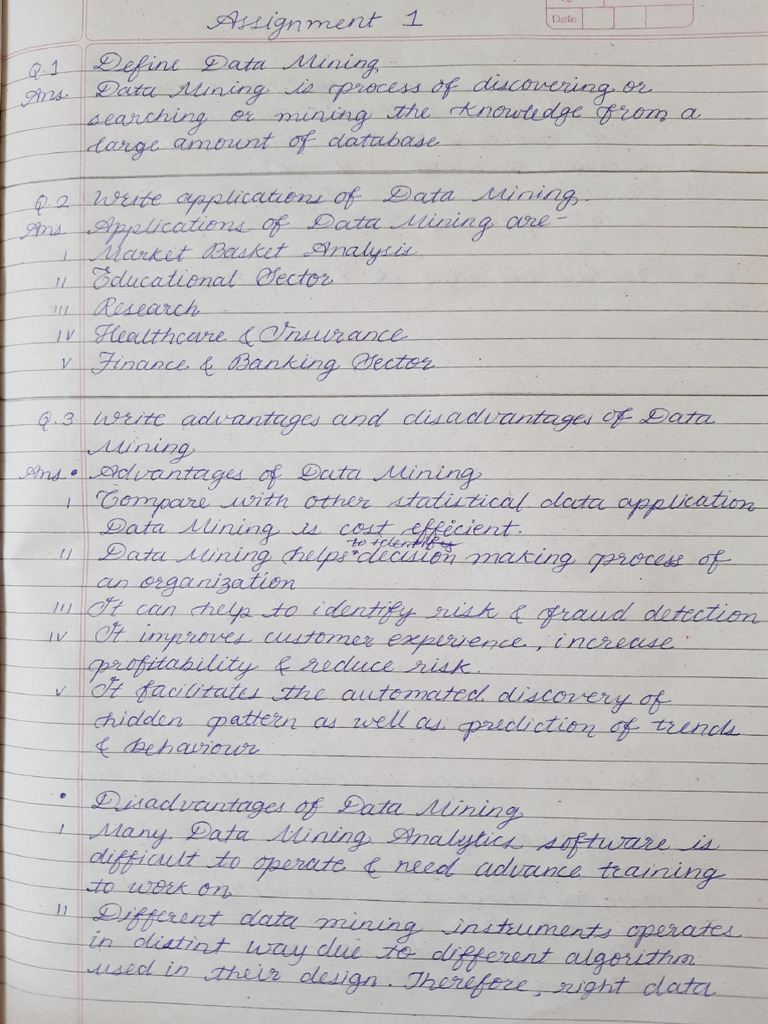 Assignment 1
Date
Q.1 Define Data Mining
Ans Data Mining is process of discovering or
searching or mining the knowledge from a
large amount of database
Q.2 Write applications of Data Mining.
Ans Applications of Data Mining are-
I Market Basket Analysis
II Educational Sector
III Research
IV Healthcare & Insurance
V Finance & Banking Sector
Q.3 Write advantages and disadvantages of Data
Mining
Ans • Advantages of Data Mining
I Compare with other statistical data application
Data Mining is cost efficient.
to identify
II Data Mining helps decision making process of
an organization
III It can help to identify risk & fraud detection
IV It improves customer experience, increase
profitability & reduce risk.
V It facilitates the automated discovery of
hidden pattern as well as prediction of trends
& behaviour
• Disadvantages of Data Mining
I Many Data Mining Analytics software is
difficult to operate & need advance training
to work on
II Different data mining instruments operates
in distint way due to different algorithm
used in their design. Therefore, right data